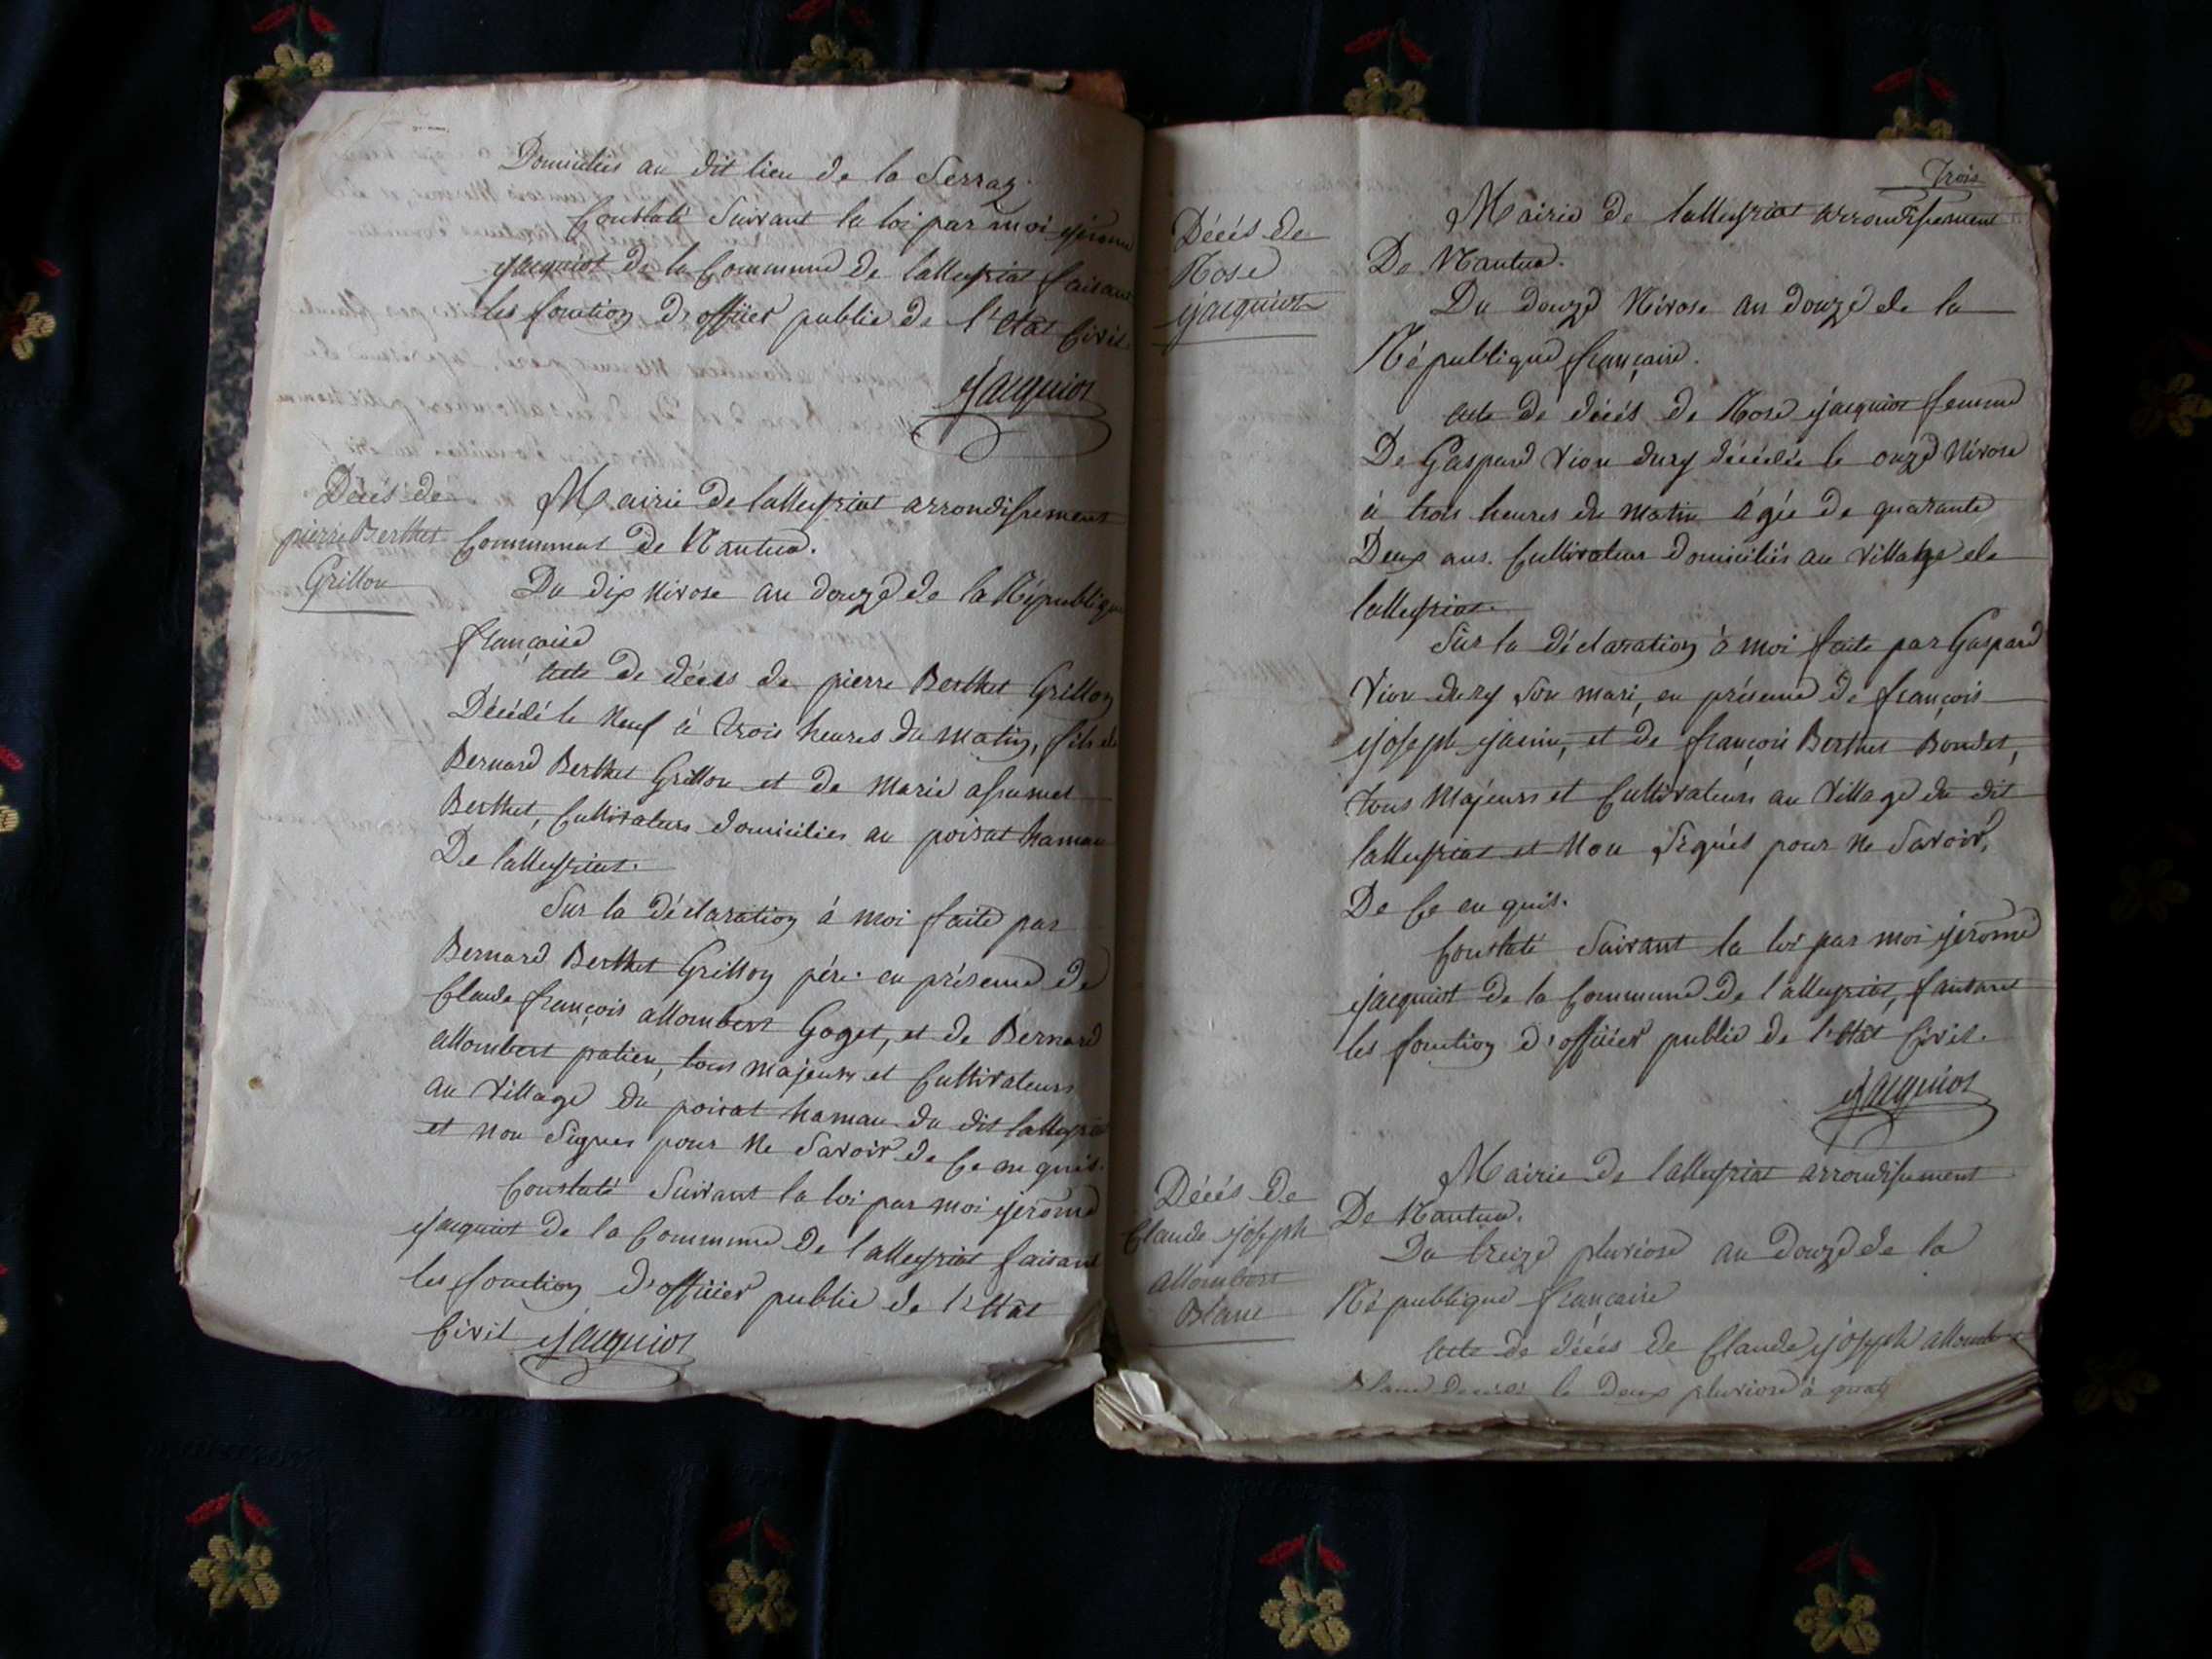 Domiciliés au dit lieu de la Serraz.
Constaté Suivant la loi par moi jérome
jacquiot de la Commune de lalleyriat faisant
les fonction d'officier public de l'état Civil.
jacquiot
Décés de
pierre Berthet
Grillon
Mairie de lalleyriat arrondissement
Communal de Nantua.
Du dix Nivose an douze de la République
française
acte de décès de pierre Berthet Grillon
Décédé le Neuf à trois heures du matin, fils de
Bernard Berthet Grillon et de Marie
Berthet, Cultivateurs domiciliés au poisat hamau
De lalleyriat.
Sur la déclaration à moi faite par
Bernard Berthet Grillon pére. en présence de
Claude françois allombert Goget, et de Bernard
allombert patieu, tous majeurs et Cultivateurs
au Village du poisat hamau du dit lalleyriat
et non Signés pour Ne Savoir de Ce en quis.
Constaté Suivant la loi par moi jérome
jacquiot de la Commune de lalleyriat faisant
les fonction d'officier public de l'état
Civil jacquiot
Trois
Décés de
Rose
jacquiot
Mairie de lalleyriat arrondissement
De Nantua.
Du douze Nivose an douze de la
République française.
acte de décés de Rose jacquiot femme
De Gaspard Vion dury décédée le onze Nivose
à trois heures du matin âgée de quarante
Deux ans. Cultivateur domiciliés au Village de
lalleyriat.
Sur la déclaration à moi faite par Gaspard
Vion dury Son mari, en présence de françois
joseph janin, et de françois Berthet Bondet,
tous Majeurs et Cultivateurs au Village du dit
lalleyriat et Non Signés pour Ne Savoir,
De Ce en quis.
Constaté Suivant la loi par moi jerome
jacquiot de la Commune de lalleyriat, faisant
les fonction d'officier public de l'état Civil.
jacquiot
Décés de
Claude joseph
allombert
Blanc
Mairie de lalleyriat arrondissement
De Nantua.
Du treize pluviose an douze de la
République française
acte de décés de Claude joseph allombert
Blanc Décédé le deux pluviose à quatre